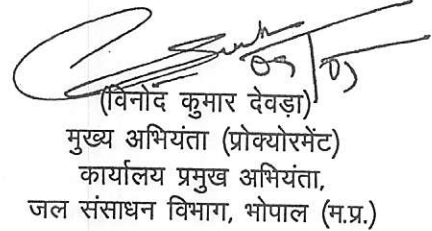 (विनोद कुमार देवड़ा)
मुख्य अभियंता (प्रोक्योरमेंट)
कार्यालय प्रमुख अभियंता,
जल संसाधन विभाग, भोपाल (म.प्र.)